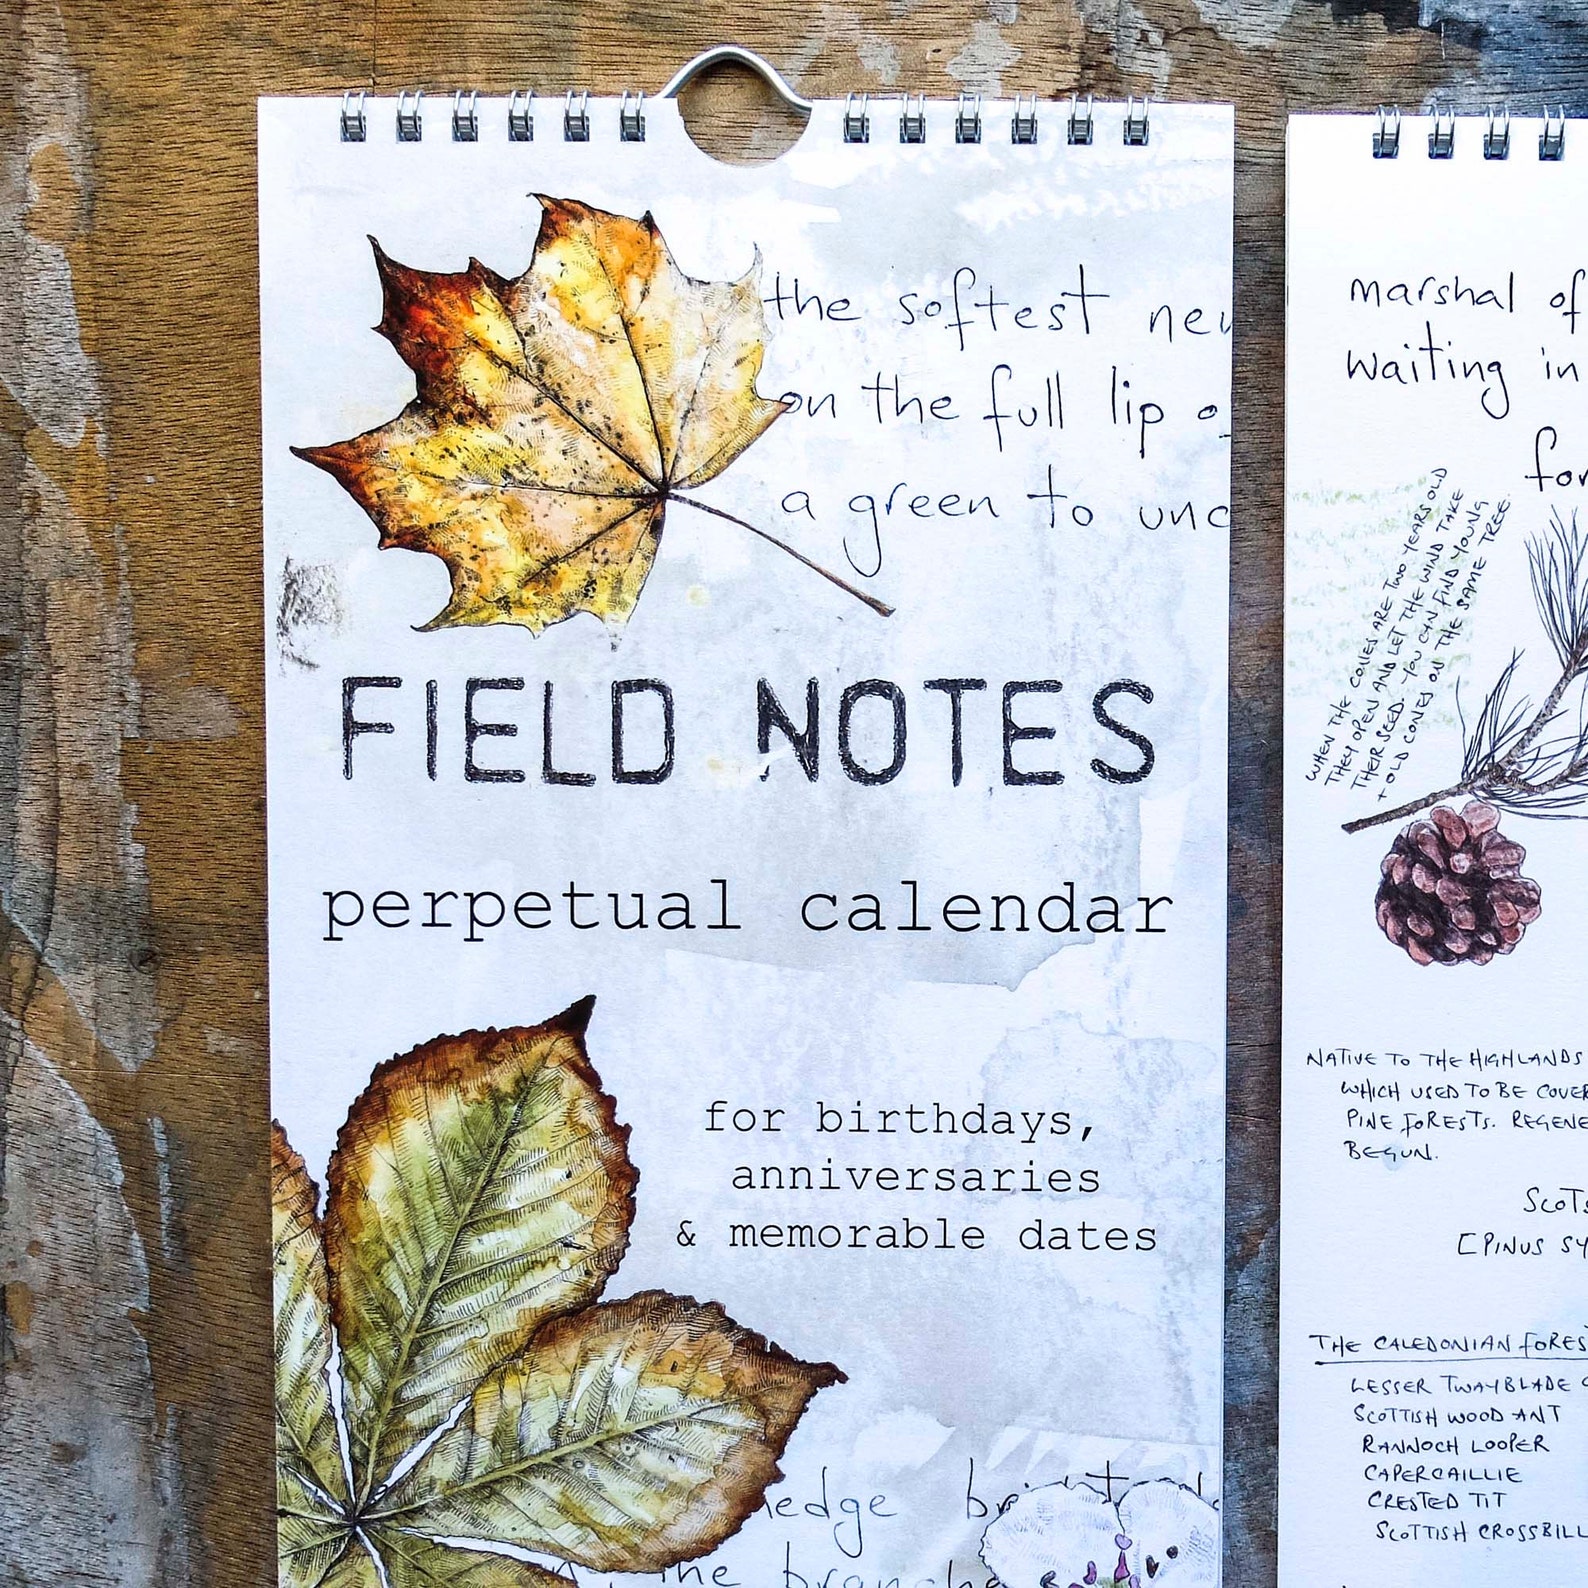 the softest
on the full lip
a green to
FIELD NOTES
perpetual calendar
for birthdays,
anniversaries
& memorable dates
the branches
marshal of
waiting in
WHEN THE CONES ARE TWO YEARS OLD
THEY OPEN AND LET THE WIND TAKE
THEIR SEED. YOU CAN FIND YOUNG
+ OLD CONES ON THE SAME TREE.
NATIVE TO THE HIGHLANDS
WHICH USED TO BE
PINE FORESTS.
BEGUN.
[PINUS
THE CALEDONIAN
LESSER TWAYBLADE
SCOTTISH WOOD ANT
RANNOCH LOOPER
CAPERCAILLIE
CRESTED TIT
SCOTTISH CROSSBILL